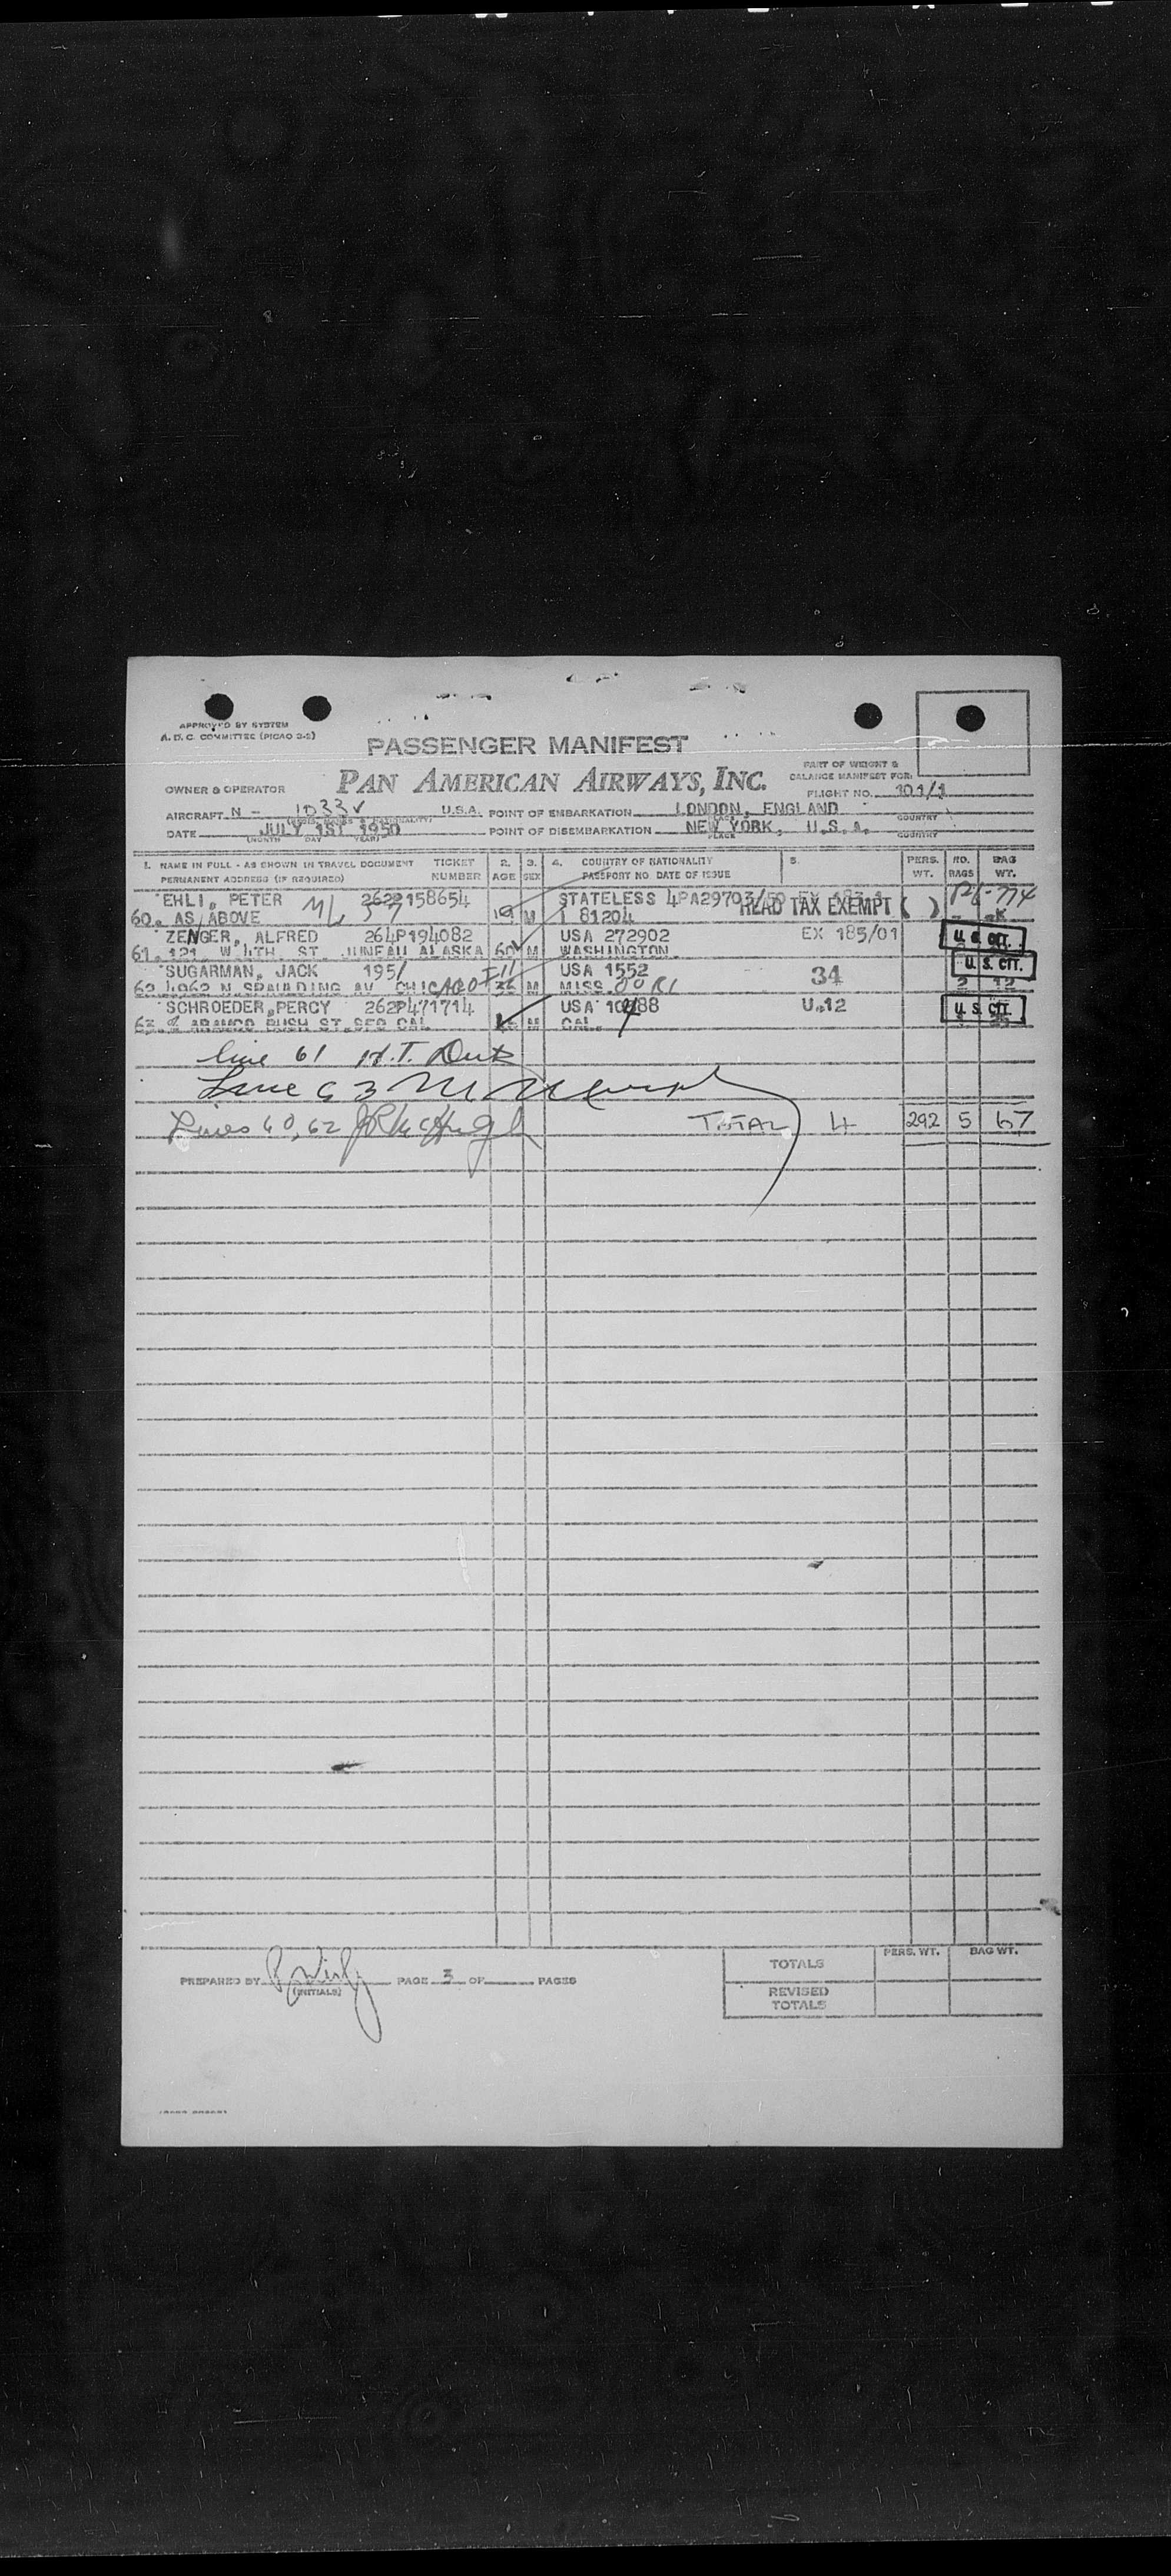 APPROVED BY SYSTEM
A. D. C. COMMITTEE (PICAO 2-2)
PASSENGER MANIFEST
PAN AMERICAN AIRWAYS, INC.
PART OF WEIGHT &
BALANCE MANIFEST FOR:
OWNER & OPERATOR
FLIGHT NO. 101/1
AIRCRAFT N - 1033V U.S.A. POINT OF EMBARKATION LONDON, ENGLAND
PLACE COUNTRY
DATE JULY 1ST 1950 POINT OF DISEMBARKATION NEW YORK, U.S.A.
(MONTH DAY YEAR) PLACE COUNTRY
1. NAME IN FULL - AS SHOWN IN TRAVEL DOCUMENT TICKET 2. 3. 4. COUNTRY OF NATIONALITY 5. PERS. NO. BAG
PERMANENT ADDRESS (IF REQUIRED) NUMBER AGE SEX PASSPORT NO. DATE OF ISSUE WT. BAGS WT.
EHLI, PETER 262P158654 STATELESS
60. AS ABOVE M I 81204 HEAD TAX EXEMPT ( )
ZENGER, ALFRED 264P194082 USA 272902 EX 185/01 U.S. CIT.
61. 121 W 4TH. ST. JUNEAU ALASKA 60 M WASHINGTON.
SUGARMAN, JACK 195/ USA 1552 34 U.S. CIT.
62. 4962 N SPAULDING AV CHICAGO M MISSOURI 2 12
SCHROEDER, PERCY 262P471714 USA U.12 U.S. CIT.
63. ARAMCO BUSH ST. SFO CAL M CAL.
Line 61 H.T.
Line 63 M
Lines 60, 62
TOTAL 4 292 5 67
PERS. WT. BAG WT.
TOTALS
PREPARED BY PAGE 3 OF PAGES
(INITIALS)
REVISED
TOTALS